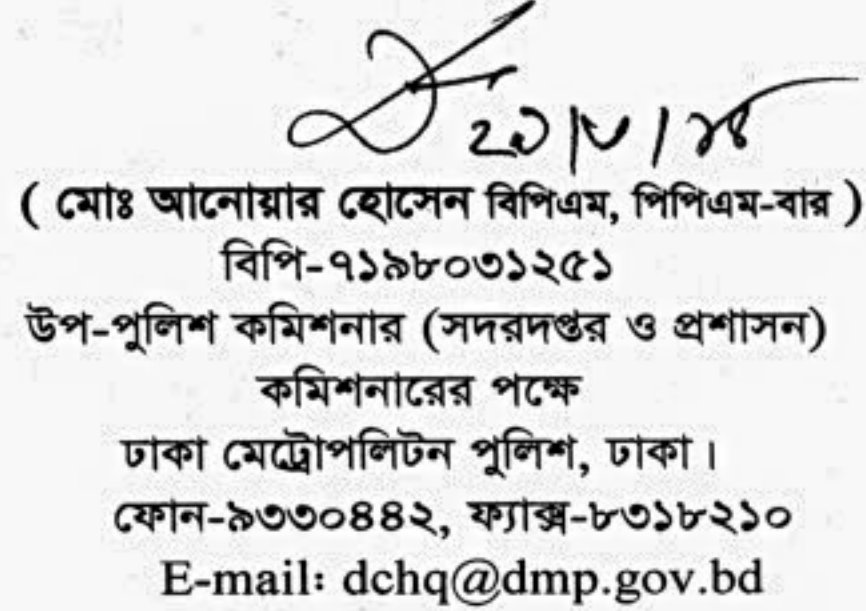 ২১/৮/১৪
( মোঃ আনোয়ার হোসেন বিপিএম, পিপিএম-বার )
বিপি-৭১৯৮০৩১২৫১
উপ-পুলিশ কমিশনার (সদরদপ্তর ও প্রশাসন)
কমিশনারের পক্ষে
ঢাকা মেট্রোপলিটন পুলিশ, ঢাকা।
ফোন-৯৩৩০৪৪২, ফ্যাক্স-৮৩১৮২১০
E-mail: dchq@dmp.gov.bd